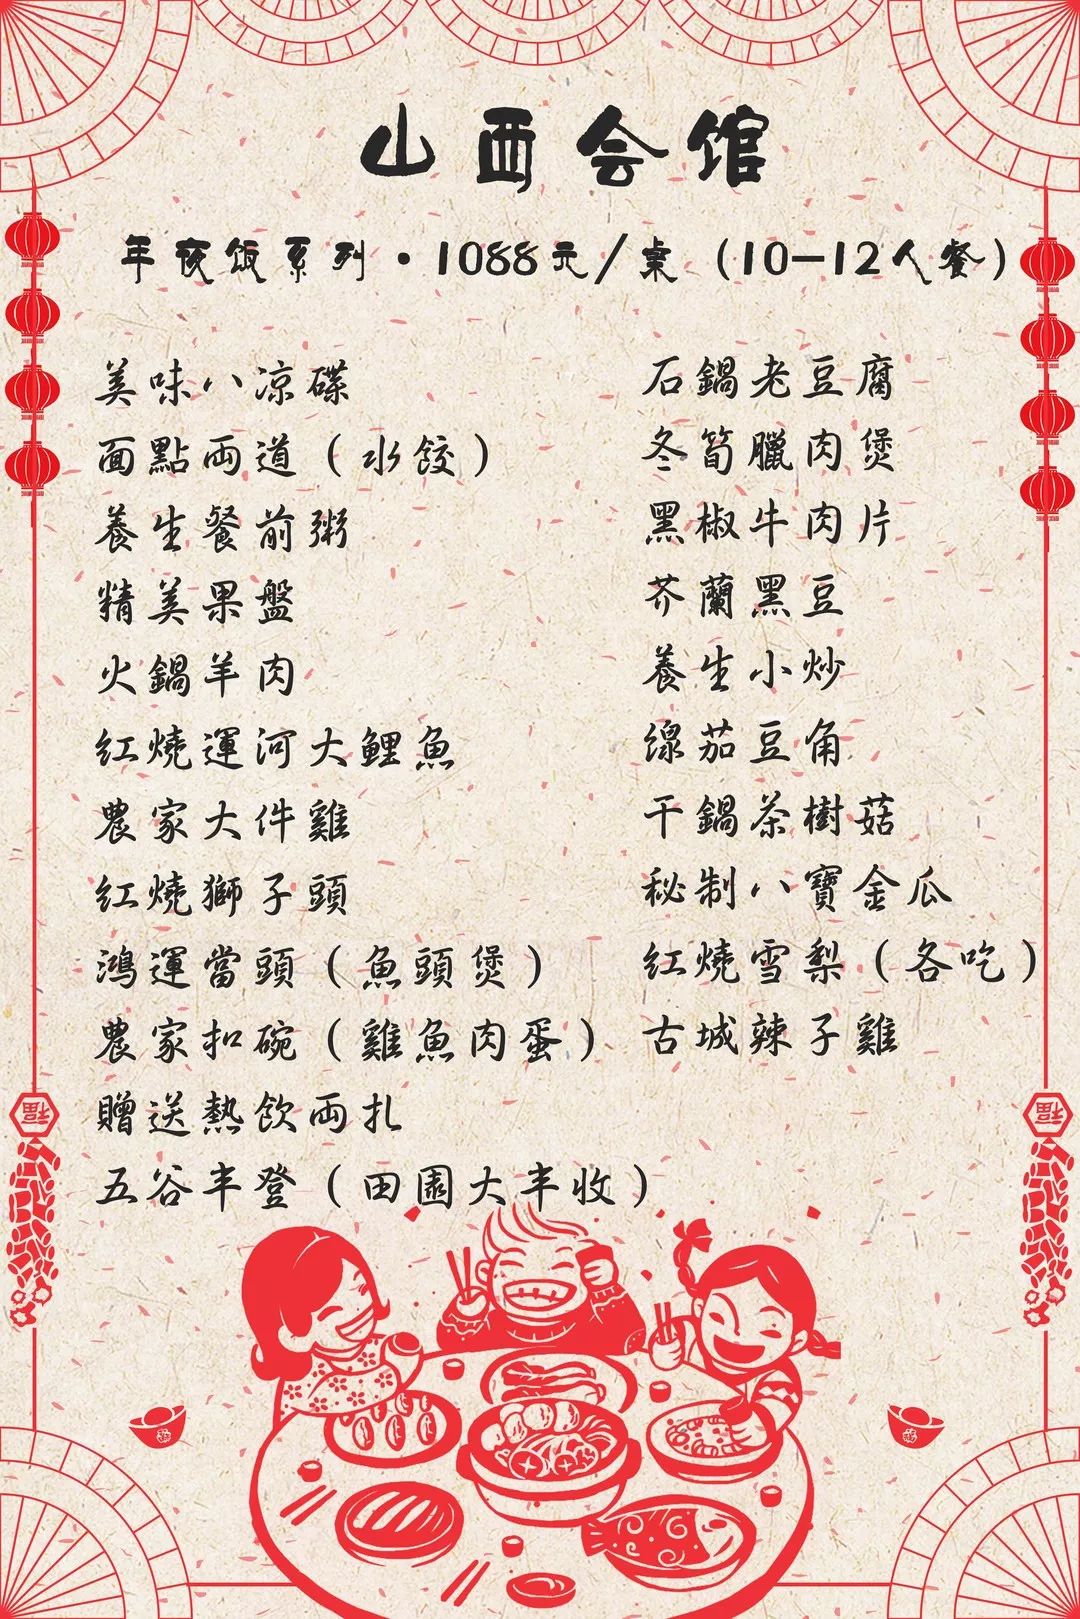 山西会馆
年夜饭系列·1088元/桌（10-12人餐）
美味八凉碟
面點両道（水餃）
養生餐前粥
精美果盤
火鍋羊肉
红燒運河大鲤魚
農家大件雞
红燒獅子頭
鴻運當頭（魚頭煲）
農家扣碗（雞魚肉蛋）
贈送熱飲両扎
五谷丰登（田園大丰收）
石鍋老豆腐
冬筍臘肉煲
黑椒牛肉片
芥蘭黑豆
養生小炒
線茄豆角
干鍋茶樹菇
秘制八寶金瓜
红燒雪梨（各吃）
古城辣子雞
福
福